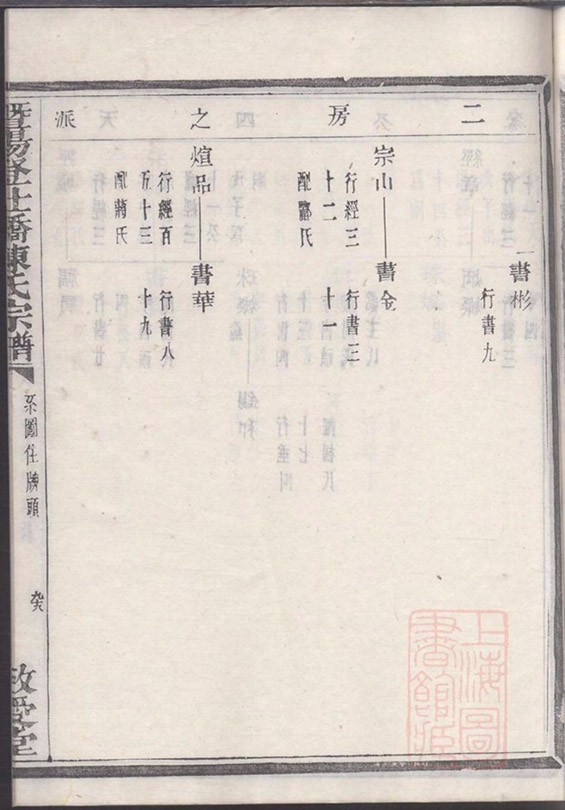 二房之派
書彬
行書九
宗山 書金
行經三 行書三
十二 十一
配酈氏
煊品 書華
行經百 行書八
五十三 十九
配蔣氏
暨陽登仕橋陳氏宗譜
系圖住牌頭
堂
上海圖
書館藏